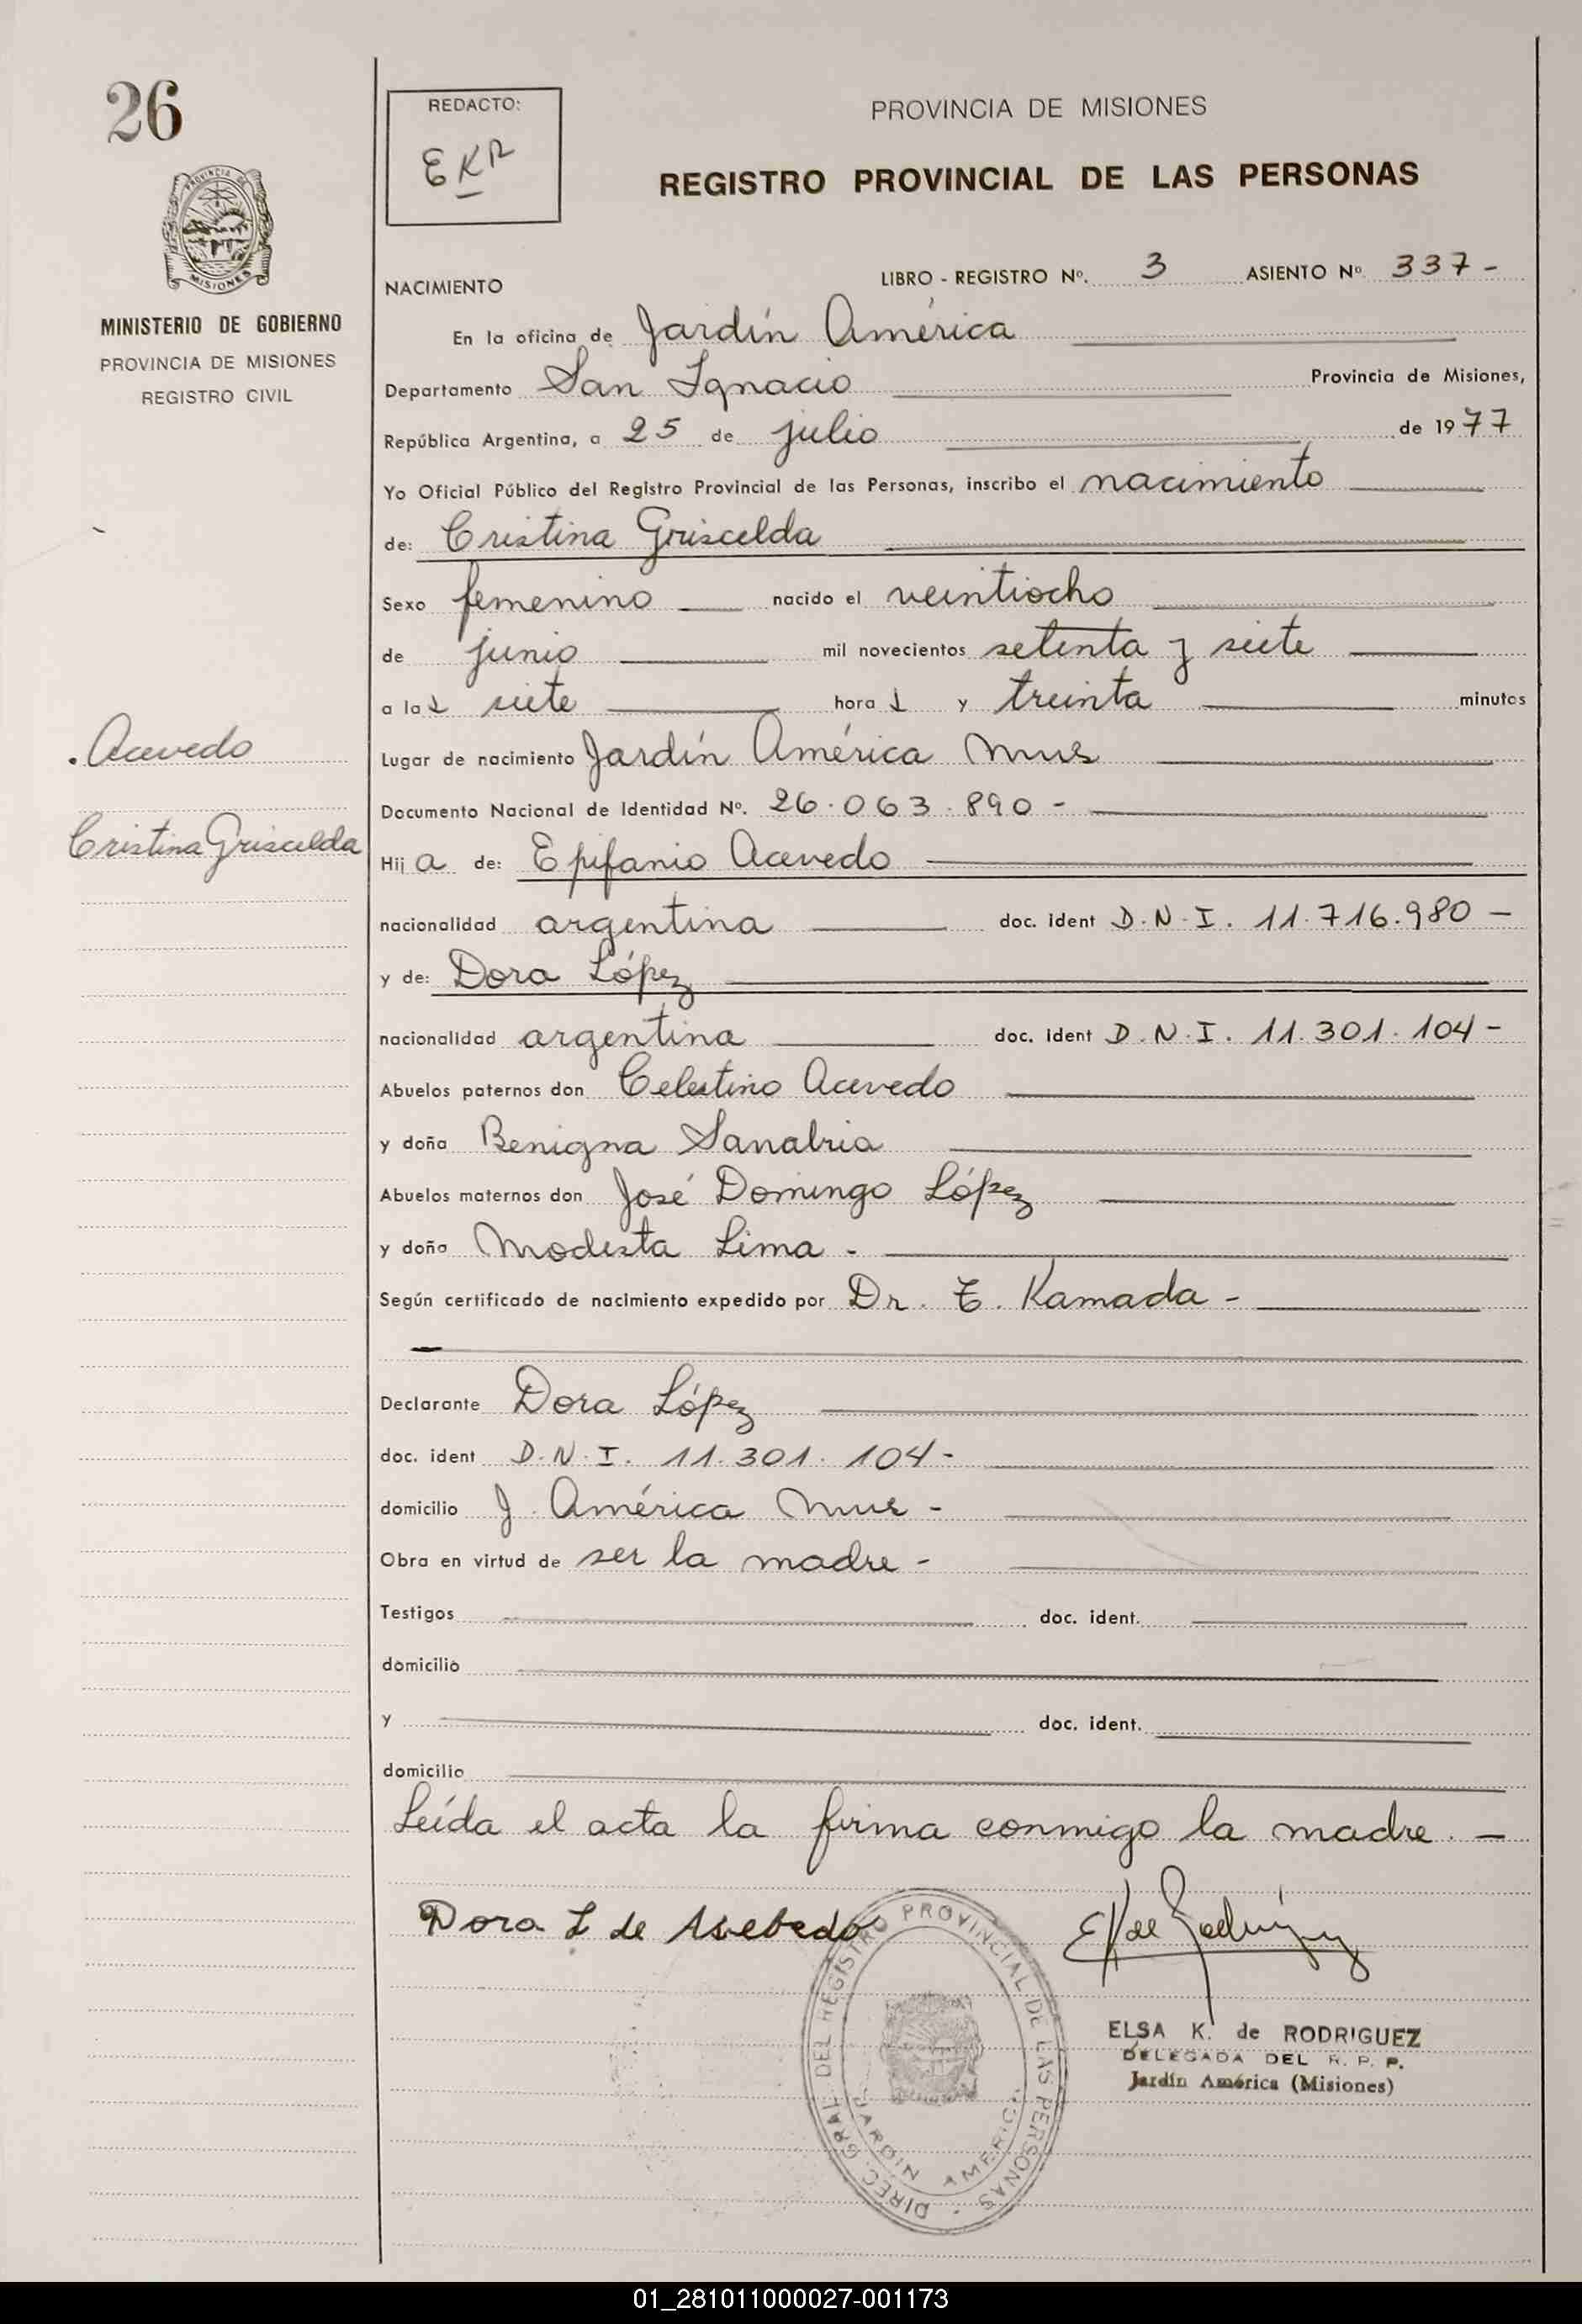 26
REDACTO:
EKR
PROVINCIA DE MISIONES
REGISTRO PROVINCIAL DE LAS PERSONAS
PROVINCIA DE
MISIONES
MINISTERIO DE GOBIERNO
PROVINCIA DE MISIONES
REGISTRO CIVIL
NACIMIENTO
LIBRO - REGISTRO Nº. 3 ASIENTO Nº 337 -
En la oficina de Jardín América
Departamento San Ignacio Provincia de Misiones,
República Argentina, a 25 de julio de 1977
Yo Oficial Público del Registro Provincial de las Personas, inscribo el nacimiento
de: Cristina Griscelda
Sexo femenino nacido el veintiocho
de junio mil novecientos setenta y siete
a las siete horas y treinta minutos
Acevedo
Cristina Griscelda
Lugar de nacimiento Jardín América Mnes
Documento Nacional de Identidad Nº. 26.063.890 -
Hija de: Epifanio Acevedo
nacionalidad argentina doc. ident D.N.I. 11.716.980 -
y de: Dora López
nacionalidad argentina doc. ident D.N.I. 11.301.104 -
Abuelos paternos don Celestino Acevedo
y doña Benigna Sanabria
Abuelos maternos don José Domingo López
y doña Modesta Lima -
Según certificado de nacimiento expedido por Dr. T. Kamada -
Declarante Dora López
doc. ident D.N.I. 11.301.104 -
domicilio J. América Mnes -
Obra en virtud de ser la madre -
Testigos doc. ident.
domicilio
y doc. ident.
domicilio
Leída el acta la firma conmigo la madre. -
Dora L de Asebedo
EK de Rodríguez
DIREC. GRAL. DEL REGISTRO PROVINCIAL DE LAS PERSONAS
JARDIN AMERICA
ELSA K. de RODRIGUEZ
DELEGADA DEL R. P. P.
Jardín América (Misiones)
01_281011000027-001173